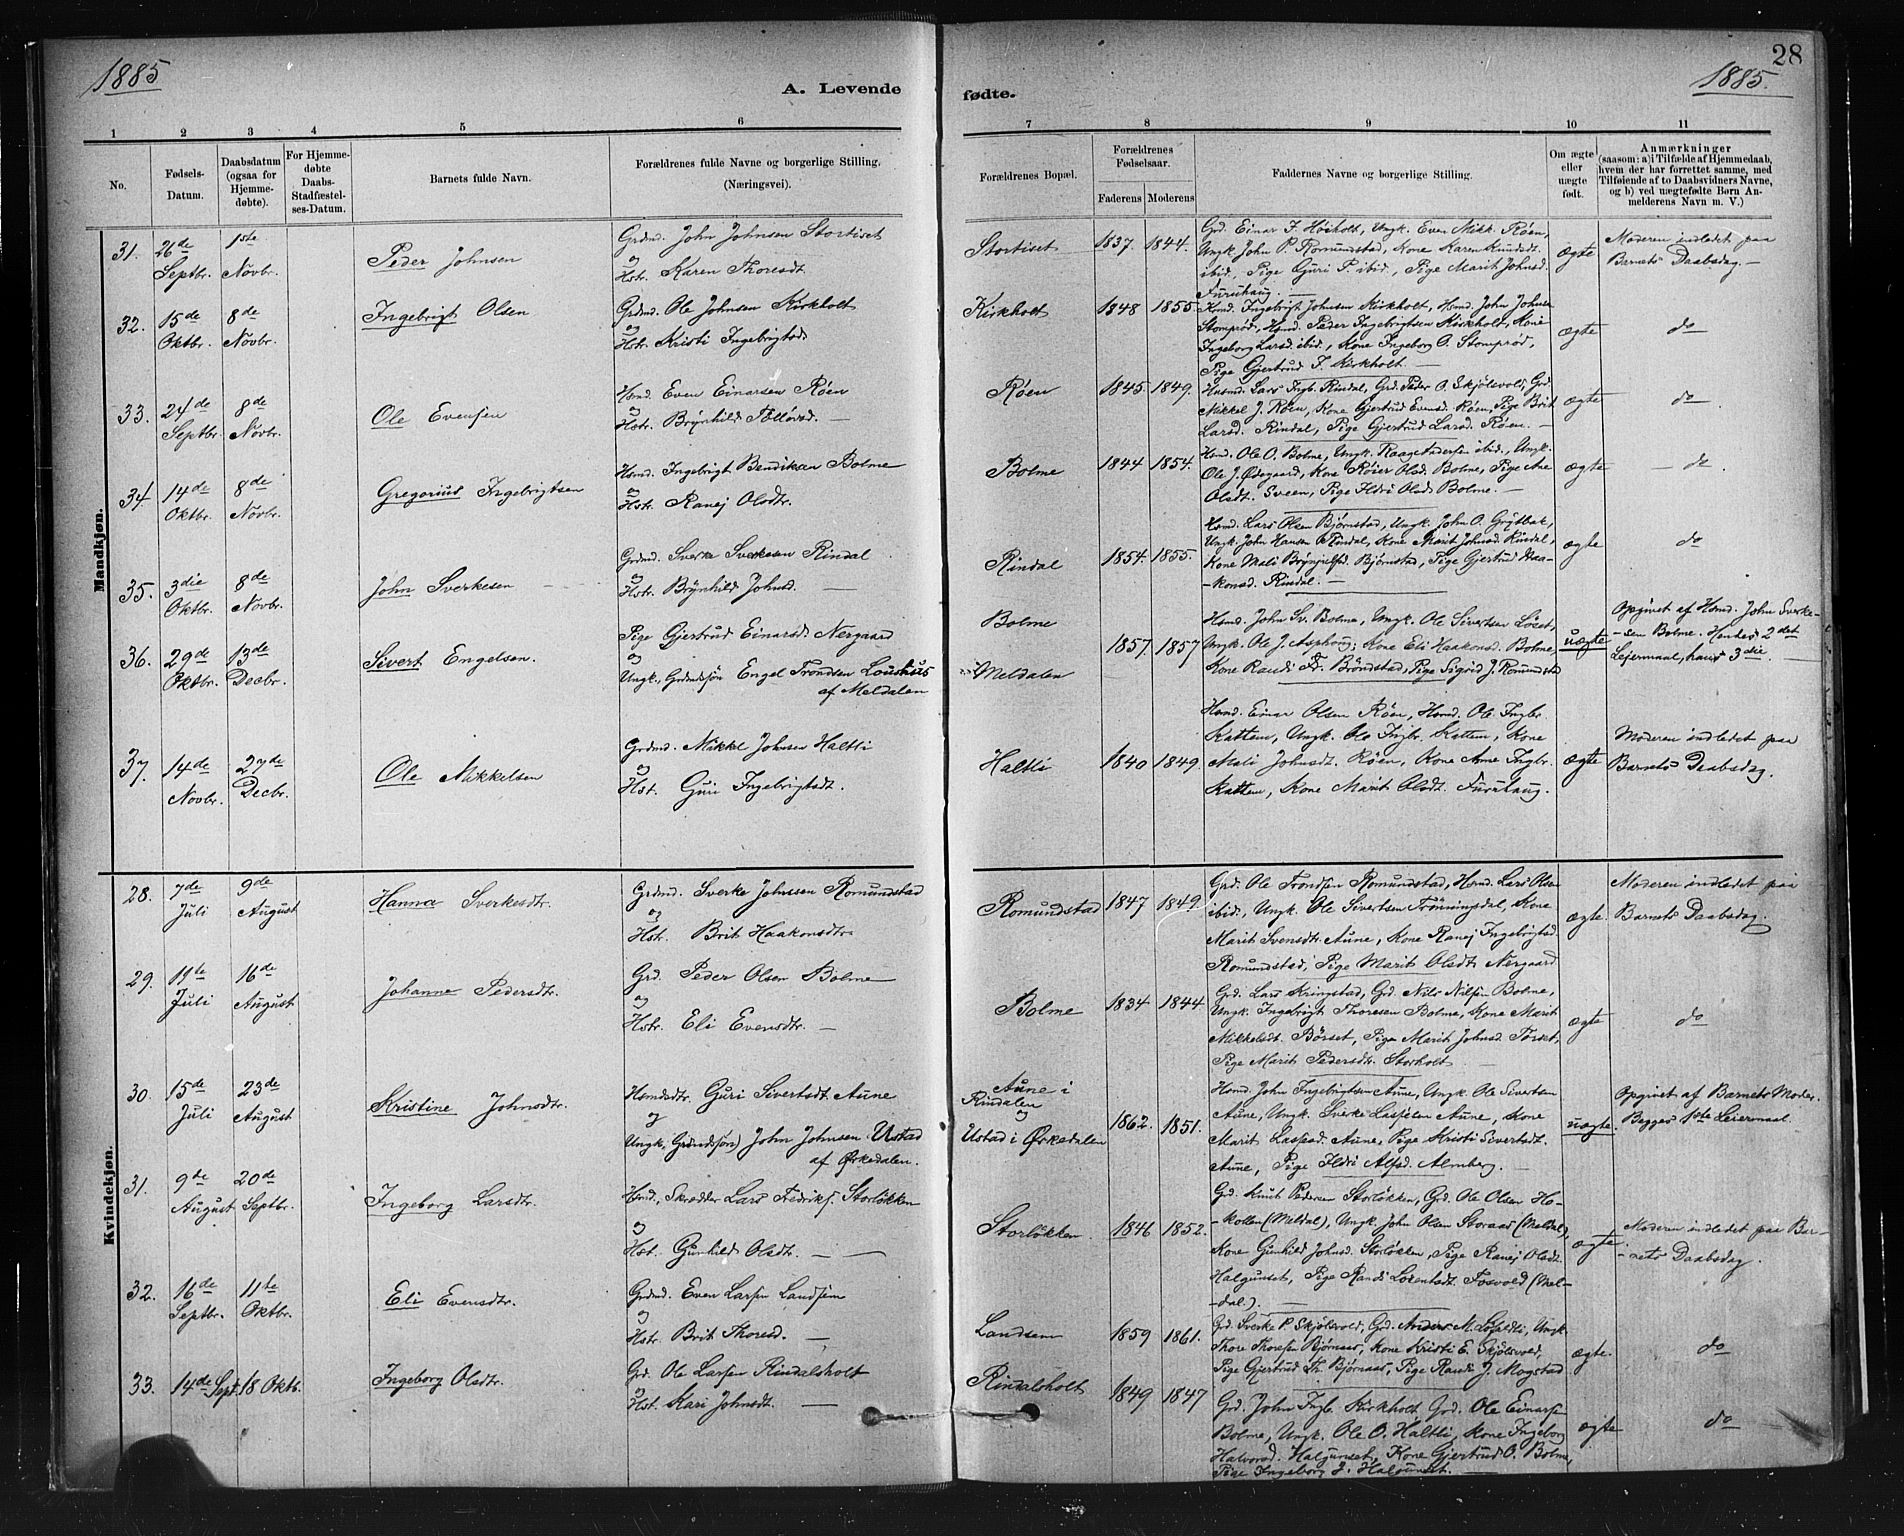 1885
A. Levende
1
2
3
4
5
6
No.
Fødsels-
Datum.
Daabsdatum
(ogsaa for
Hjemme-
døbte).
For Hjemme-
døbte
Daabs-
Stadfæstel-
ses-Datum.
Barnets fulde Navn.
Forældrenes fulde Navne og borgerlige Stilling.
(Næringsvei).
Mandkjøn.
31.
26de
Septbr.
1ste
Novbr.
Peder Johnsen
Grdmd. John Johnsen Stortiset
og
Hstr. Karen Thoresdt.
32.
15de
Oktbr.
8de
Novbr.
Ingebrigt Olsen
Grdmd. Ole Johnsen Kirkholt
og
Hstr. Kristi Ingebrigtsd.
33.
24de
Septbr.
8de
Novbr.
Ole Evensen
Hsmd. Even Einarsen Røen
og
Hstr. Brynhild —
34.
14de
Oktbr.
8de
Novbr.
Gregorius Ingebrigtsen
Hsmd. Ingebrigt Bendiksen Bolme
og
Hstr. Ranej Olsdtr.
35.
3die
Oktbr.
8de
Novbr.
John Sverkesen
Grdmd. Sverke Sverkesen Rindal
og
Hstr. Brynhild Johnsd. —
36.
29de
Oktbr.
13de
Decbr.
Sivert Engelsen.
Pige Gjertrud Einarsd. Nergaard
og
Ungk., Grdmdssøn Engel Trondsen Loushus
af Meldalen
37.
14de
Novbr.
27de
Decbr.
Ole Mikkelsen
Grdmd. Mikkel Johnsen Haltli
og
Hst. Guri Ingebrigtsdt.
Kvindekjøn.
28.
7de
Juli
9de
August
Hanna Sverkesdtr.
Grdmd. Sverke Johnssen Romundstad
og
Hstr. Brit Haakonsdtr.
29.
11te
Juli
16de
August
Johanne Pedersdtr.
Grd. Peder Olsen Bolme
og
Hstr. Eli Evensdtr. —
30.
15de
Juli
23de
August
Kristine Johnsdtr.
Hsmdsdtr. Guri Sivertsdt. Aune
og
Ungk., Grdmdssøn) John Johnsen Ustad
af Ørkedalen.
31.
9de
August
20de
Septbr.
Ingeborg Larsdtr.
Hsmd., Skrædder Lars Fredriks. Storløkken
og
Hst. Gunhild Olsdtr. —
32.
16de
Septbr.
11te
Oktbr.
Eli Evensdtr.
Grdmd. Even Larsen Landsem
og
Hstr. Brit Thoresd. —
33.
14de Sept.
18 Oktb.
Ingeborg Olsdtr.
Grd. Ole Larsen Rindalsholt
og
Hst. Kari Johnsdt. —
28
1885.
fødte.
7
8
9
10
11
Forældrenes Bopæl.
Forældrenes
Fødselsaar.
Faderens
Moderens
Faddernes Navne og borgerlige Stilling.
Om ægte
eller
uægte
født.
Anmærkninger
(saasom: a) i Tilfælde af Hjemmedaab,
hvem der har forrettet samme, med
Tilføiende af to Daabsvidners Navne,
og b) ved uægtefødte Børn An-
melderens Navn m. V.)
Stortiset
1837.
1844.
Grd. Einar F. Høiholt, Ungk. Even Mikk. Røen,
Ungk. John P. Romundstad, Kone Karen Knudsdt.
ibid., Pige Guri P. ibid., Pige Marit Johnsd.
Furuhaug. —
ægte
Moderen indledet paa
Barnets Daabsdag. —
Kirkholt
1848
1855.
Hsmd. Ingebrigt Johnsen Kirkholt, Hsmd. John Johnsen
Stomprød, Hsmd. Peder Ingebrigtsen Kirkholt, Kone
Ingeborg Larsd. ibid., Kone Ingeborg O. Stomprød,
Pige Gjertrud F. Kirkholt. —
ægte
do
Røen
1845.
1849.
Husmd. Lars Ingb. Rindal, Grd. Peder O. Skjølsvold, Grd.
Mikkel J. Røen, Kone Gjertrud Evensd. Røen, Pige Brit
Larsd. Rindal, Pige Gjertrud Larsd. Røen. —
ægte
do
Bolme
1844
1854.
Hsmd. Ole O. Bolme, Ungk. Andersen ibid., Ungk.
Ole J. Ødegaard, Kone Olsd. Bolme, Pige Ane
Olsdt. Sveen, Pige Ildri Olsd. Bolme. —
ægte
— do
Rindal
1854.
1855.
Hsmd. Lars Olsen Bjørnstad, Ungk. John O. Grytbak,
Ungk. John Hansen Rindal, Kone Marit Johnsd. Rindal,
Kone Mali Brynjulfsd. Bjørnstad, Pige Gjertrud Haa-
-konsd. Rindal. —
ægte
do
Bolme
Meldalen
1857.
1857
Hsmd. John Sv. Bolme, Ungk. Ole Sivertsen Løset,
Ungk. Ole J. Asphaug, Kone Eli Haakonsd. Bolme,
Kone Randi Fr. Brøndstad, Pige Sigrid J. Romundstad
uægte
Opgivet af Hsmd. John Sverke-
-sen Bolme. Hendes 2det
Leiermaal, hans 3die.
Haltli
1840
1849.
Hsmd. Einar Olsen Røen, Hsmd. Ole Ingbr.
Kattem, Ungk. Ole Ingbr. Kattem, Kone
Mali Johnsdt. Røen, Kone Anne Ingbr.
Kattem, Kone Marit Olsdt. Furuhaug.
ægte
Moderen indledet paa
Barnets Daabsdag.
Romundstad
1847
1849.
Grd. Ole Trondsen Romundstad, Hsmd. Lars Olsen
ibid., Ungk. Ole Sivertsen Trønningsdal, Kone
Marit Svensdtr. Aune, Kone Ranej Ingebrigtsd.
Romundstad, Pige Marit Olsdt. Nergaard
ægte.
Moderen indledet paa
Barnets Daabsdag.
Bolme
1834
1844.
Grd. Lars Kringstad, Grd. Nils Nilsen Bolme,
Ungk. Ingebrigt Thoresen Bolme, Kone Marit
Mikkelsdt. Børset, Pige Marit Johnsd. Tørset,
Pige Marit Pedersdtr. Storholt —
ægte
do
Aune i
Rindalen
og
Ustad i Ørkedalen
1862.
1851.
Hsmd. John Ingebrigtsen Aune, Ungk. Ole Sivertsen
Aune, Ungk. Sverke Larssen Aune, Kone
Marit Larssd. Aune, Pige Kristi Sivertsdt.
Aune, Pige Ildri Alfsd. Almberg. —
uægte.
Opgivet af Barnets Moder.
Begges 1ste Leiermaal.
Storløkken.
1846
1852.
Grd. Knut Pedersen Storløkken, Grd. Ole Olsen Ho-
-kollen (Meldal), Ungk. John Olsen Storaas (Meldal),
Kone Gunhild Johnsd. Storløkken, Pige Ranej Olsdt.
Halgunset, Pige Randi Lorentsdt. Fosvold (Mel-
-dal.). —
ægte.
Moderen indledet paa Bar-
-nets Daabsdag.
Landsem
1859
1861.
Grd. Sverke P. Skjølsvold, Grd. Anders M. Løfaldli, Ungk.
Thore Thoresen Bjørnaas, Kone Kristi E. Skjølsvold,
Pige Gjertrud Th. Bjørnaas, Pige Randi J. Mogstad
ægte.
do
Rindalsholt
1849
1847
Grd. John Ingb. Kirkholt, Grd. Ole Einarsen
Bolme, Ungk. Ole O. Haltli, Kone Ingeborg
Halvorsd. Halgunset, Kone Gjertrud O. Bolme,
Pige Ingeborg J. Halgunset. —
ægte
do